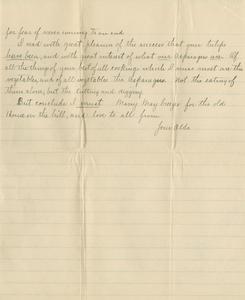 for fear of never coming to an end.
I read with great pleasure of the success that your tulips
have been, and with great interest of what our Asparagus are. Of
all the things of your best of all cooking which I miss most are the
vegetables, and of all vegetables the Asparagus. Not the eating of
them alone, but the cutting and digging.
But conclude I must. Many May for the old
House on the hill, and love to all from
Your Aldo